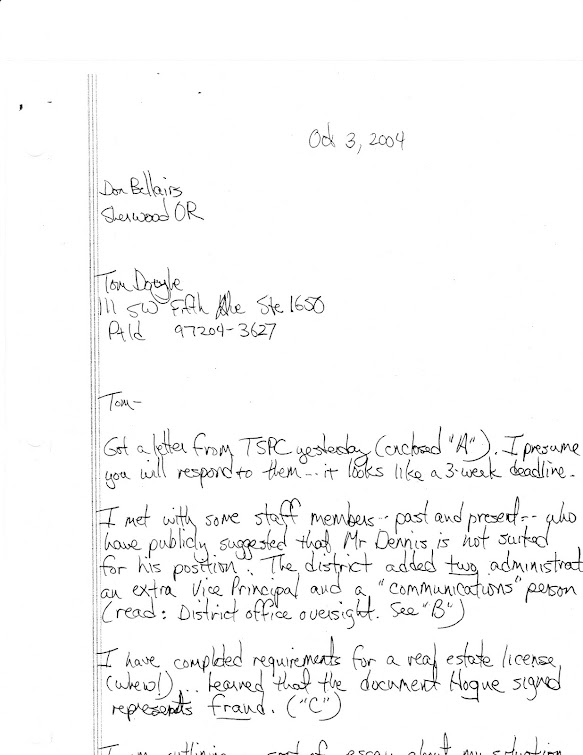 Oct 3, 2004
Don Bellairs
Sherwood OR
Tom Doyle
111 SW Fifth Ave Ste 1650
Ptld 97204-3627
Tom-
Got a letter from TSPC yesterday (enclosed "A"). I presume
you will respond to them -- it looks like a 3-week deadline.
I met with some staff members -- past and present -- who
have publicly suggested that Mr Dennis is not suited
for his position. The district added two administrat
an extra Vice Principal and a "communications" person
(read: District office oversight. See "B")
I have completed requirements for a real estate license
(whew!)... learned that the document Hogue signed
represents fraud. ("C")
I am outlining sort of essay about my situation